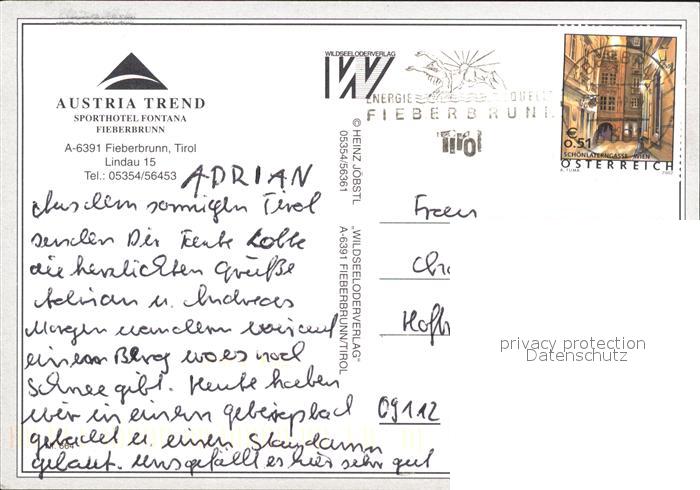 AUSTRIA TREND
SPORTHOTEL FONTANA
FIEBERBRUNN
A-6391 Fieberbrunn, Tirol
Lindau 15
Tel.: 05354/56453
ADRIAN
Aus dem sonnigen Tirol
senden Dir Tante Lotte
die herzlichsten Grüße
Adrian u. Andreas
Morgen wandern wir auf
einen Berg wo es noch
Schnee gibt. Heute haben
wir in einem Gebirgsbach
gebadet u einen Staudamm
gebaut. Uns gefällt es hier sehr gut
Nr. 664
WILDSEELODERVERLAG
© HEINZ JÖBSTL
05354/56361
"WILDSEELODERVERLAG"
A-6391 FIEBERBRUNN/TIROL
ENERGIE QUELLE
FIEBERBRUNN
Tirol
€ 0.51
SCHÖNLATERNGASSE, WIEN
ÖSTERREICH
A. TUMA 2002
Frau
Chr
Hofb
09112
privacy protection
Datenschutz